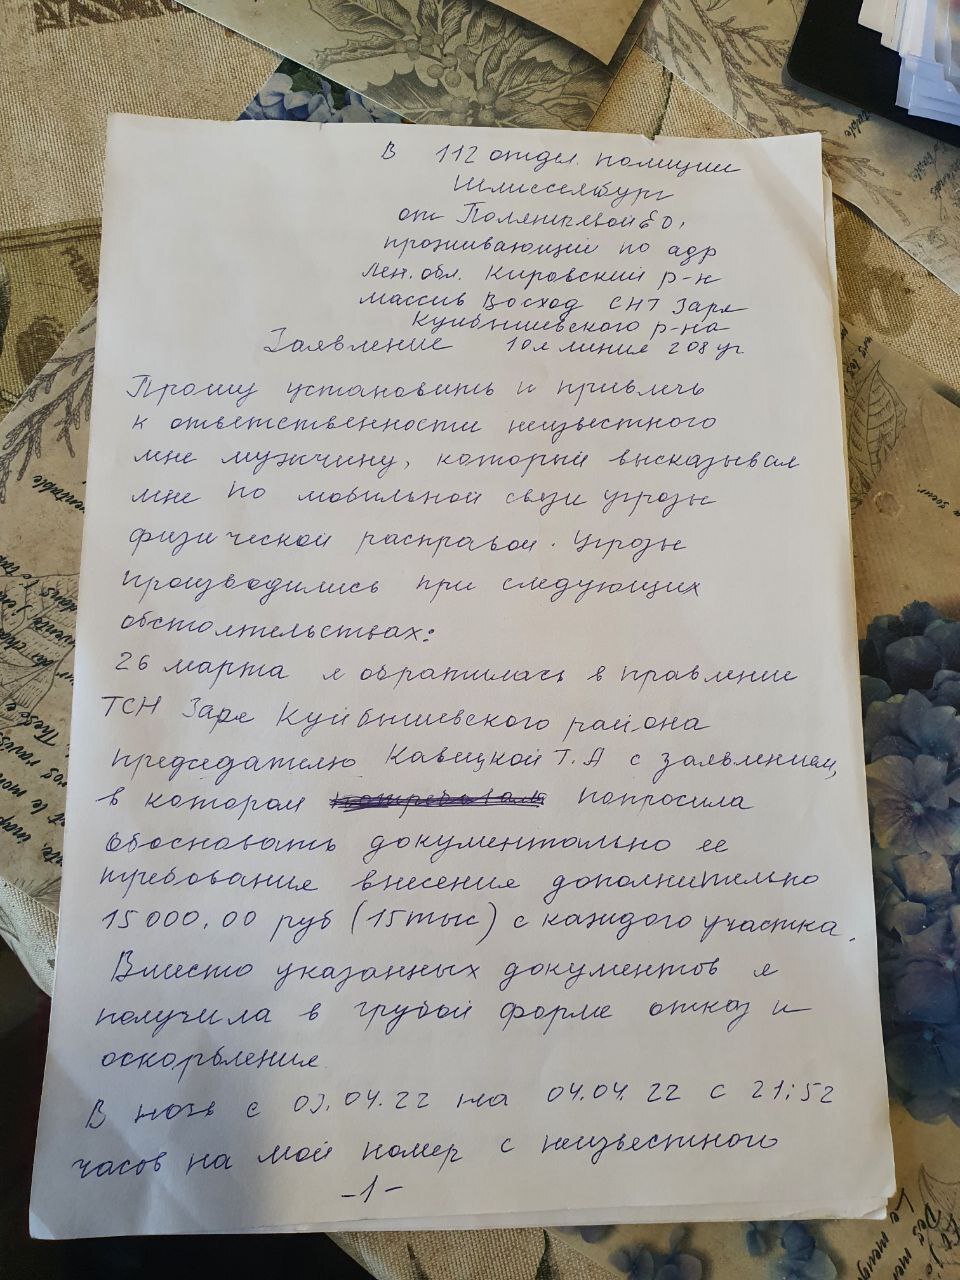 В 112 отдел. полиции
Шлиссельбург
от
проживающий по адр
Лен. обл. Кировский р-н
массив Восход СНТ Заря
Куйбышевского р-на
Заявление 10я линия 208 уч
Прошу установить и привлечь
к ответственности неизвестного
мне мужчину, который высказывал
мне по мобильной связи угрозы
физической расправой. Угрозы
производились при следующих
обстоятельствах:
26 марта я обратилась в правление
ТСН Заря Куйбышевского района
председателю Кавецкой Т.А с заявлением,
в котором попросила
обосновать документально ее
требование внесения дополнительно
15 000,00 руб (15 тыс) с каждого участка.
Вместо указанных документов я
получила в грубой форме отказ и
оскорбления
В ночь с 03.04.22 на 04.04.22 с 21:52
часов на мой номер с неизвестного
-1-